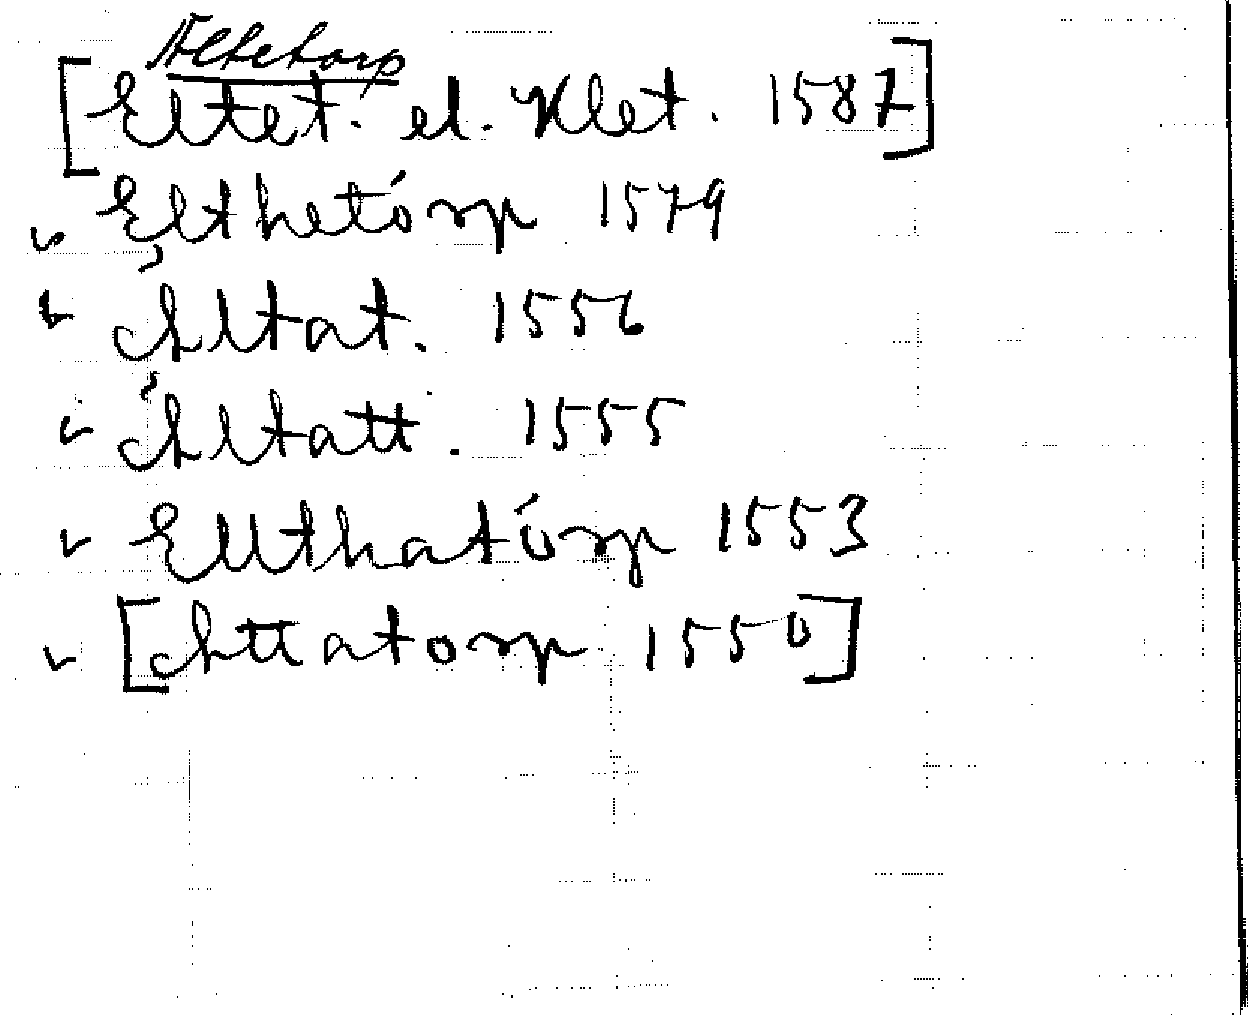 Elletorp
[Eltet. el. Klet. 1587]
Elthetórp 1579
Áltat. 1556
Áltatt. 1555
Ellthatórp 1553
[Attatorp 1550]